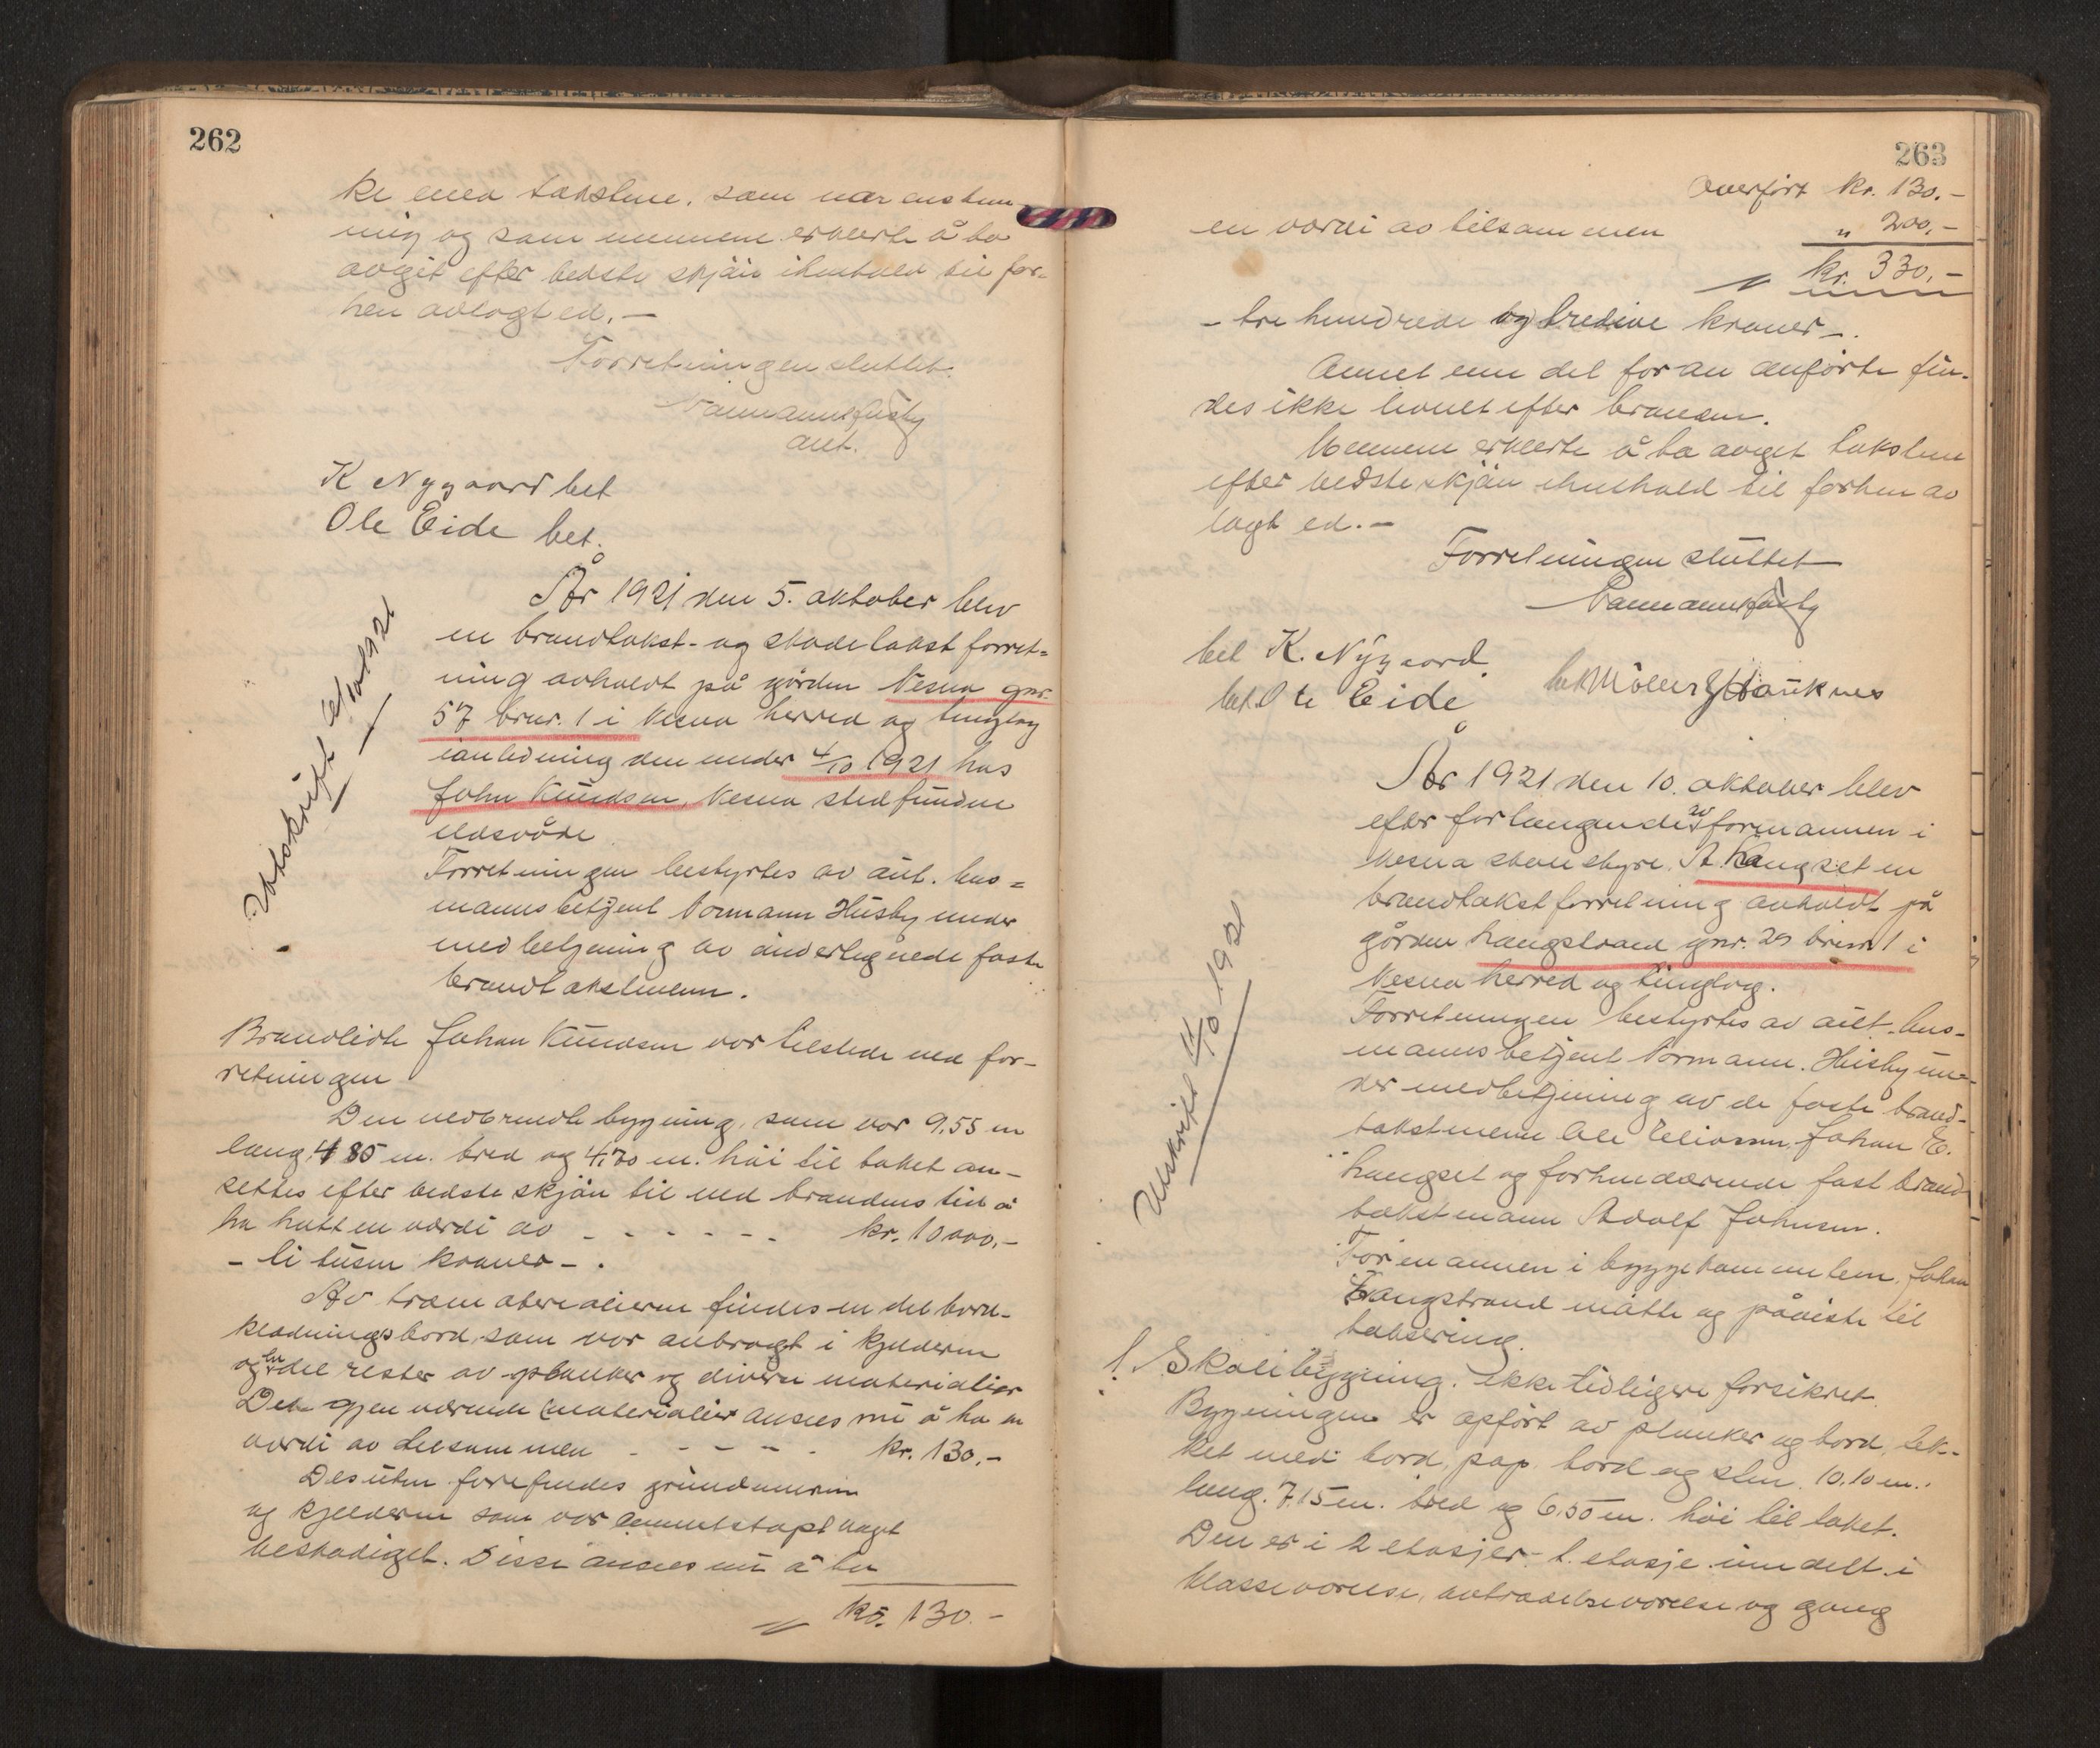 262
ke med takstene, som var enstem-
mig og som mennene erklerte å ha
avgit efter bedste skjön ihenhold til for-
hen avlagt ed. —
Forretningen sluttet.
Normann Husby
aut.
K Nygaard bet
Ole Eide bet.
Utskrift 1921
År 1921 den 5. oktober blev
en brandtakst- og skadetakst forret-
ning avholdt på gården Nesna gnr.
57 brnr. 1 i Nesna herred og tinglag
ianledning den under 4/10 1921 hos
John Knudsen, Nesna stedfundne
ildsvåde.
Forretningen bestyrtes av aut. lens-
mannsbetjent Normann Husby under
medbetjening av underlegnede faste
brandtakstmenn.
Brandlidte Johan Knudsen var tilstede ved for-
retningen
Den nedbrendte bygning, som var 9,55 m
lang, 4 85 m. bred og 4,70 m. höi til taket an-
settes efter bedste skjön til ved brandens tid å
ha hatt en værdi av - - - - - - kr. 10000,-
- ti tusen kroner - .
Av træmaterialierne findes en del bord-
klædningsbord, som var anbragt i kjelderen
og en del rester av planker og diverse materialier
De gjenværende materialier ansees nu å ha en
værdi av tilsammen - - - - - kr. 130,-
Desuten forefindes grundmuren
og kjelderen som var cementstöpt noget
beskadiget. Disse ansees nu å ha
kr. 130.-
263
Overfört kr. 130.-
en værdi av tilsammen " 200,-
kr. 330,-
- tre hundrede og tredive kroner -.
Annet enn det foran anförte fin-
des ikke levnet efter branden.
Mennene erklerte å ha avgit takstene
efter bedste skjön ihenhold til forhen av
lagt ed. —
Forretningen sluttet
Normann Husby
bet K. Nygaard
bet Ole Eide
bet Möller Hauknes
Utskrift 11/10 1921
År 1921 den 10. oktober blev
efter forlangende av formannen i
Nesna skolestyre, A. Langset en
brandtakstforretning avholdt på
gården Langstrand gnr. 29 brnr 1 i
Nesna herred og tinglag.
Forretningen bestyrtes av aut. lens-
mannsbetjent Normann. Husby un-
der medbetjening av de faste brand-
takstmenn Ole Eliassen, Johan E.
Langset og forhenværende fast brand
takstmann Adolf Johnsen.
Formannen i byggekomiteen, Johan
Langstrand mötte og påviste til
taksering.
1. Skolebygning. Ikke tidligere forsikret.
Bygningen er opfört av planker og bord, tek-
ket med bord, pap. bord og sten. 10.10 m.
lang. 7.15 m. bred og 6.50 m. höi til taket.
Den er i 2 etasjer. 1. etasje inndelt i
klasseværelse, avtrædelseværelse og gang